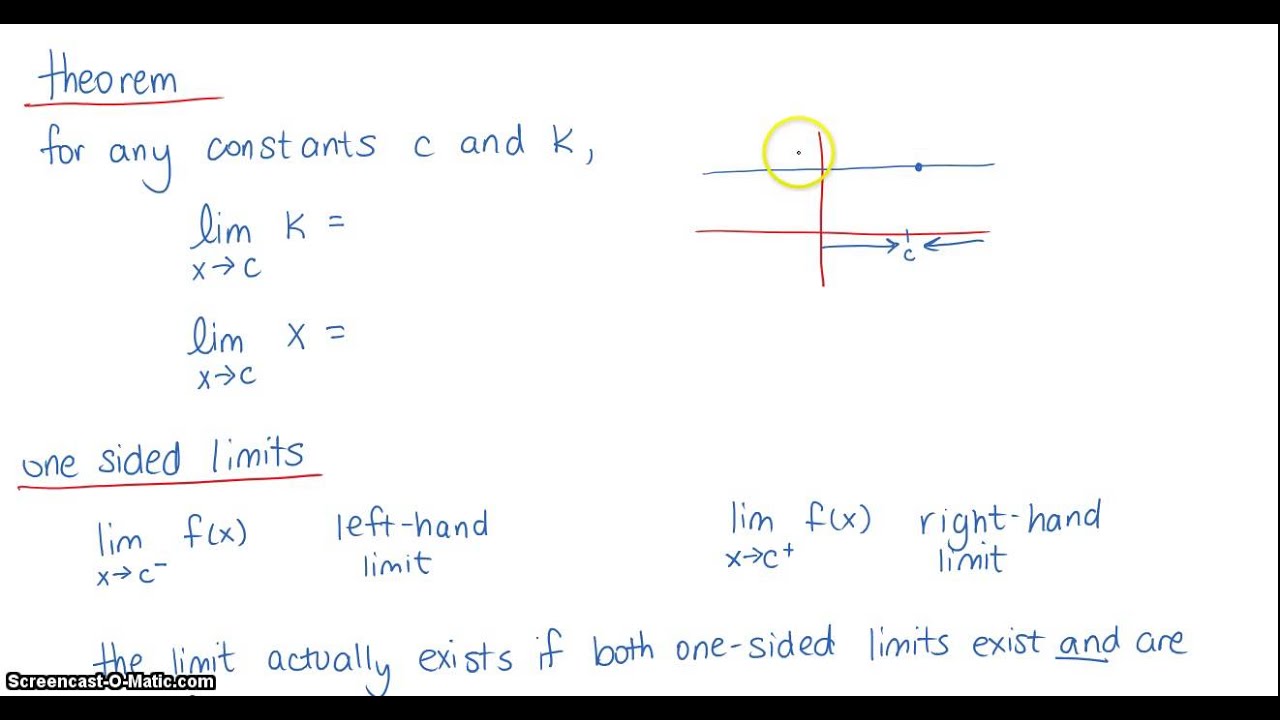 theorem
for any constants c and k,
lim k =
x→c
lim x =
x→c
c
one sided limits
lim f(x) left-hand
x→c⁻ limit
lim f(x) right-hand
x→c⁺ limit
the limit actually exists if both one-sided limits exist and are
Screencast-O-Matic.com